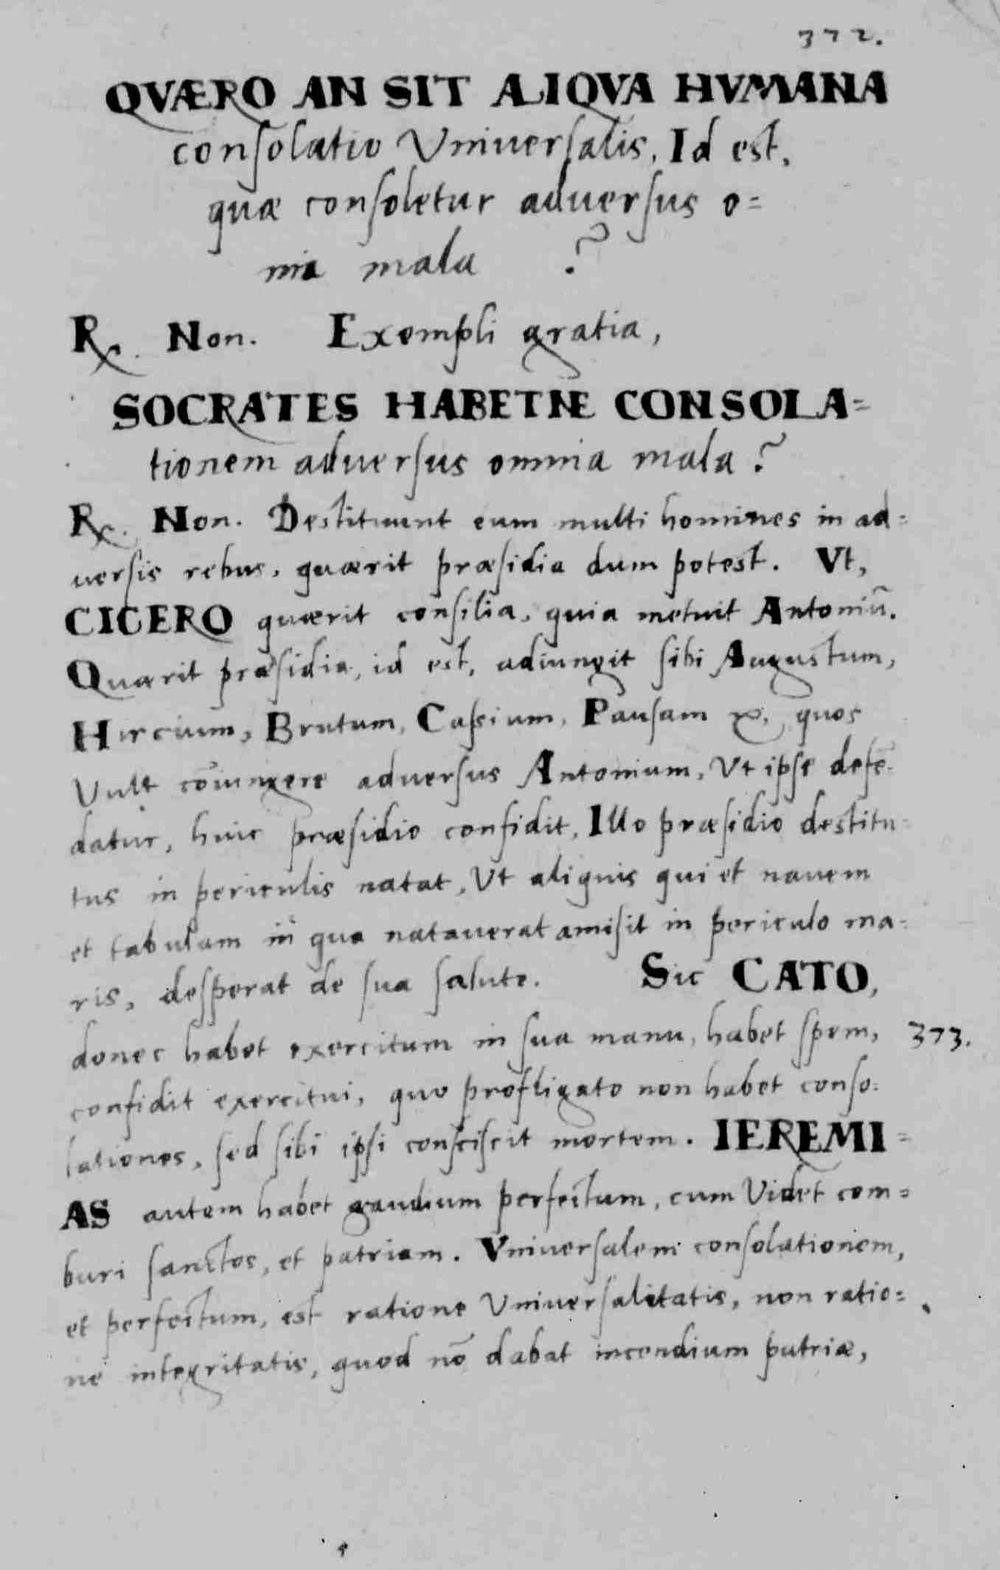 372.
QVÆRO AN SIT ALIQVA HVMANA
consolatio Vniuersalis, Id est,
quæ consoletur aduersus o=
mia mala ?
R. Non. Exempli gratia,
SOCRATES HABETNE CONSOLA=
tionem aduersus omnia mala ?
R. Non. Destituunt eum multi homines in ad=
uersis rebus, quærit præsidia dum potest. Vt,
CICERO quærit consilia, quia metuit Antoniū.
Quærit præsidia, id est, adiungit sibi Augustum,
Hircium, Brutum, Cassium, Pansam quos
Vult cōiungere aduersus Antonium, Vt ipse defē=
datur, huic præsidio confidit, Illo præsidio destitu=
tus in periculis natat, Vt aliquis qui et nauem
et tabulam in qua natauerat amisit in periculo ma=
ris, desperat de sua salute. Sic CATO,
donec habet exercitum in sua manu, habet spem, 373.
confidit exercitui, quo profligato non habet conso=
lationes, sed sibi ipsi consciscit mortem. IEREMI=
AS autem habet gaudium perfectum, cum Videt com=
buri sanctos, et patriam. Vniuersalem consolationem,
et perfectum, est ratione Vniuersalitatis, non ratio=
ne integritatis, quod nō dabat incendium patriæ,